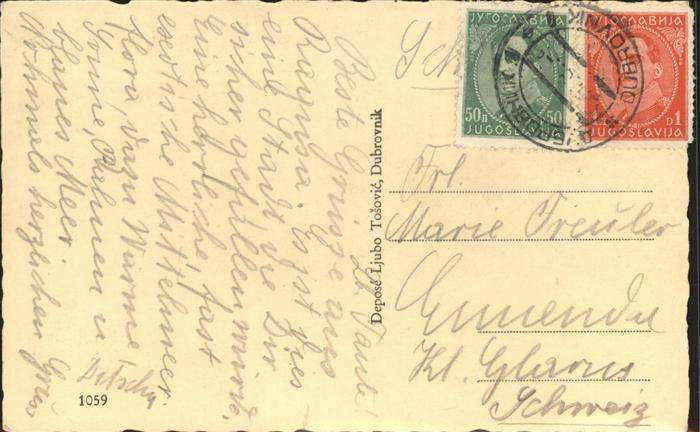 Lb. Tante!
Beste Grüsse aus
Ragusa. Es ist dies
eine Stadt die Dir
sicher gefallen würde.
Eine herrliche fast
exotische Mittelmeer
flora, dazu Wärme
Sonne, Palmen u
blaues Meer.
Nochmals herzlichen Gruss
1059
Deposé Ljubo Tošović, Dubrovnik
ЈУГОСЛАВИЈА
50П 50
JUGOSLAVIJA
ЈУГОСЛАВИЈА
D1
JUGOSLAVIJA
DUBROVNIK
Frl.
Marie Treuler
Ennenda
Kt. Glarus
Schweiz